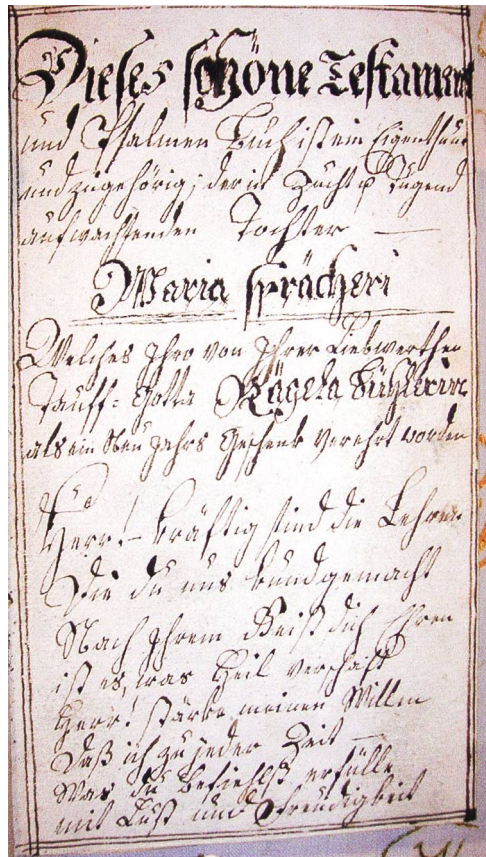 Dieses schöne Testament
und Psalmen Buch ist ein Eigenthum
und zugehörig; der in Zucht u Tugend
aufwachsenden Tochter —
Maria Sprächeri
Welches Ihro von Ihrer Liebwerthen
Tauff= Gotta Rägeta Bühlerin
als ein Neu Jahrs Geschenk verehrt worden
Herr! kräftig sind die Lehren
Die du uns kundgemacht
Nach Ihrem Geist dich Ehren
ist es, was Heil verschaft
Herr! stärke meinen Willen
Daß ich zu jeder Zeit —
Was du befiehlst erfülle
mit Lust und Freudigkeit